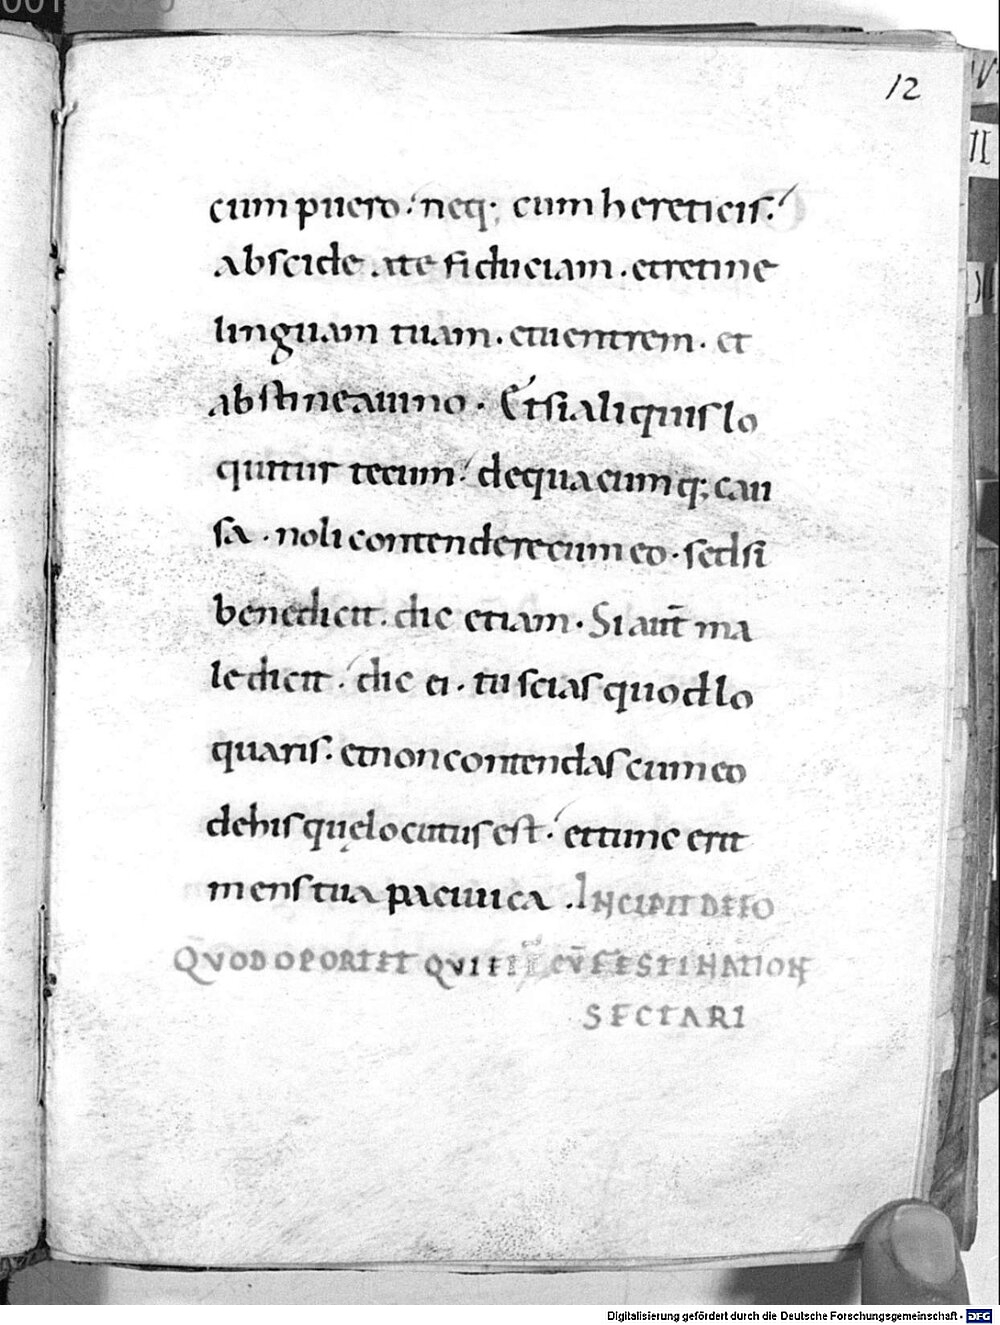 12
cum puero. neq; cum hereticis.
abscide a te fiduciam. et retine
linguam tuam. et uentrem. et
abstine a uino. Et si aliquis lo
quitur tecum. de quacumq; cau
sa. noli contendere cum eo. sed si
benedicit. dic etiam. Si aut̄ ma
ledicit. dic ei. tu scias quod lo
quaris. et non contendas cum eo
de his quę locutus est. et tunc erit
mens tua paciuica. INCIPIT DE EO
QUOD OPORTET QUIETE CŪ FESTINATION
SECTARI
Digitalisierung gefördert durch die Deutsche Forschungsgemeinschaft - DFG